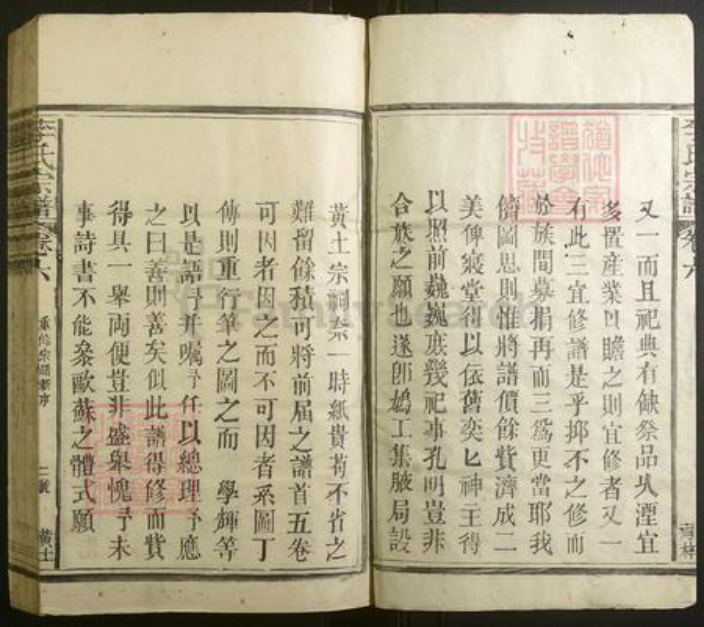 李氏宗譜
卷六
又一而且祀典有缺祭品圦湮宜
多置産業以贍之則宜修者又一
有此三宜修譜是乎抑不之修而
於族間募捐再而三爲更當耶我
儕圖思則惟將譜價餘貲濟成二
美俾寢堂得以依舊奕匕神主得
以照前巍巍庻幾祀事孔明豈非
合族之願也遂卽鳩工集腋局設
黃土宗祠奈一時紙貴苟不省之
難留餘積可將前届之譜首五卷
可因者因之而不可因者系圖丁
傳則重行筆之圖之而 學輝等
以是語予并嘱予仔以總理予應
之曰善則善矣似此譜得修而貲
得具一舉兩便豈非盛舉愧予未
事詩書不能叅歐蘇之體式願
李氏宗譜
卷六
重修宗譜新序
三號
黃土
FamilySearch